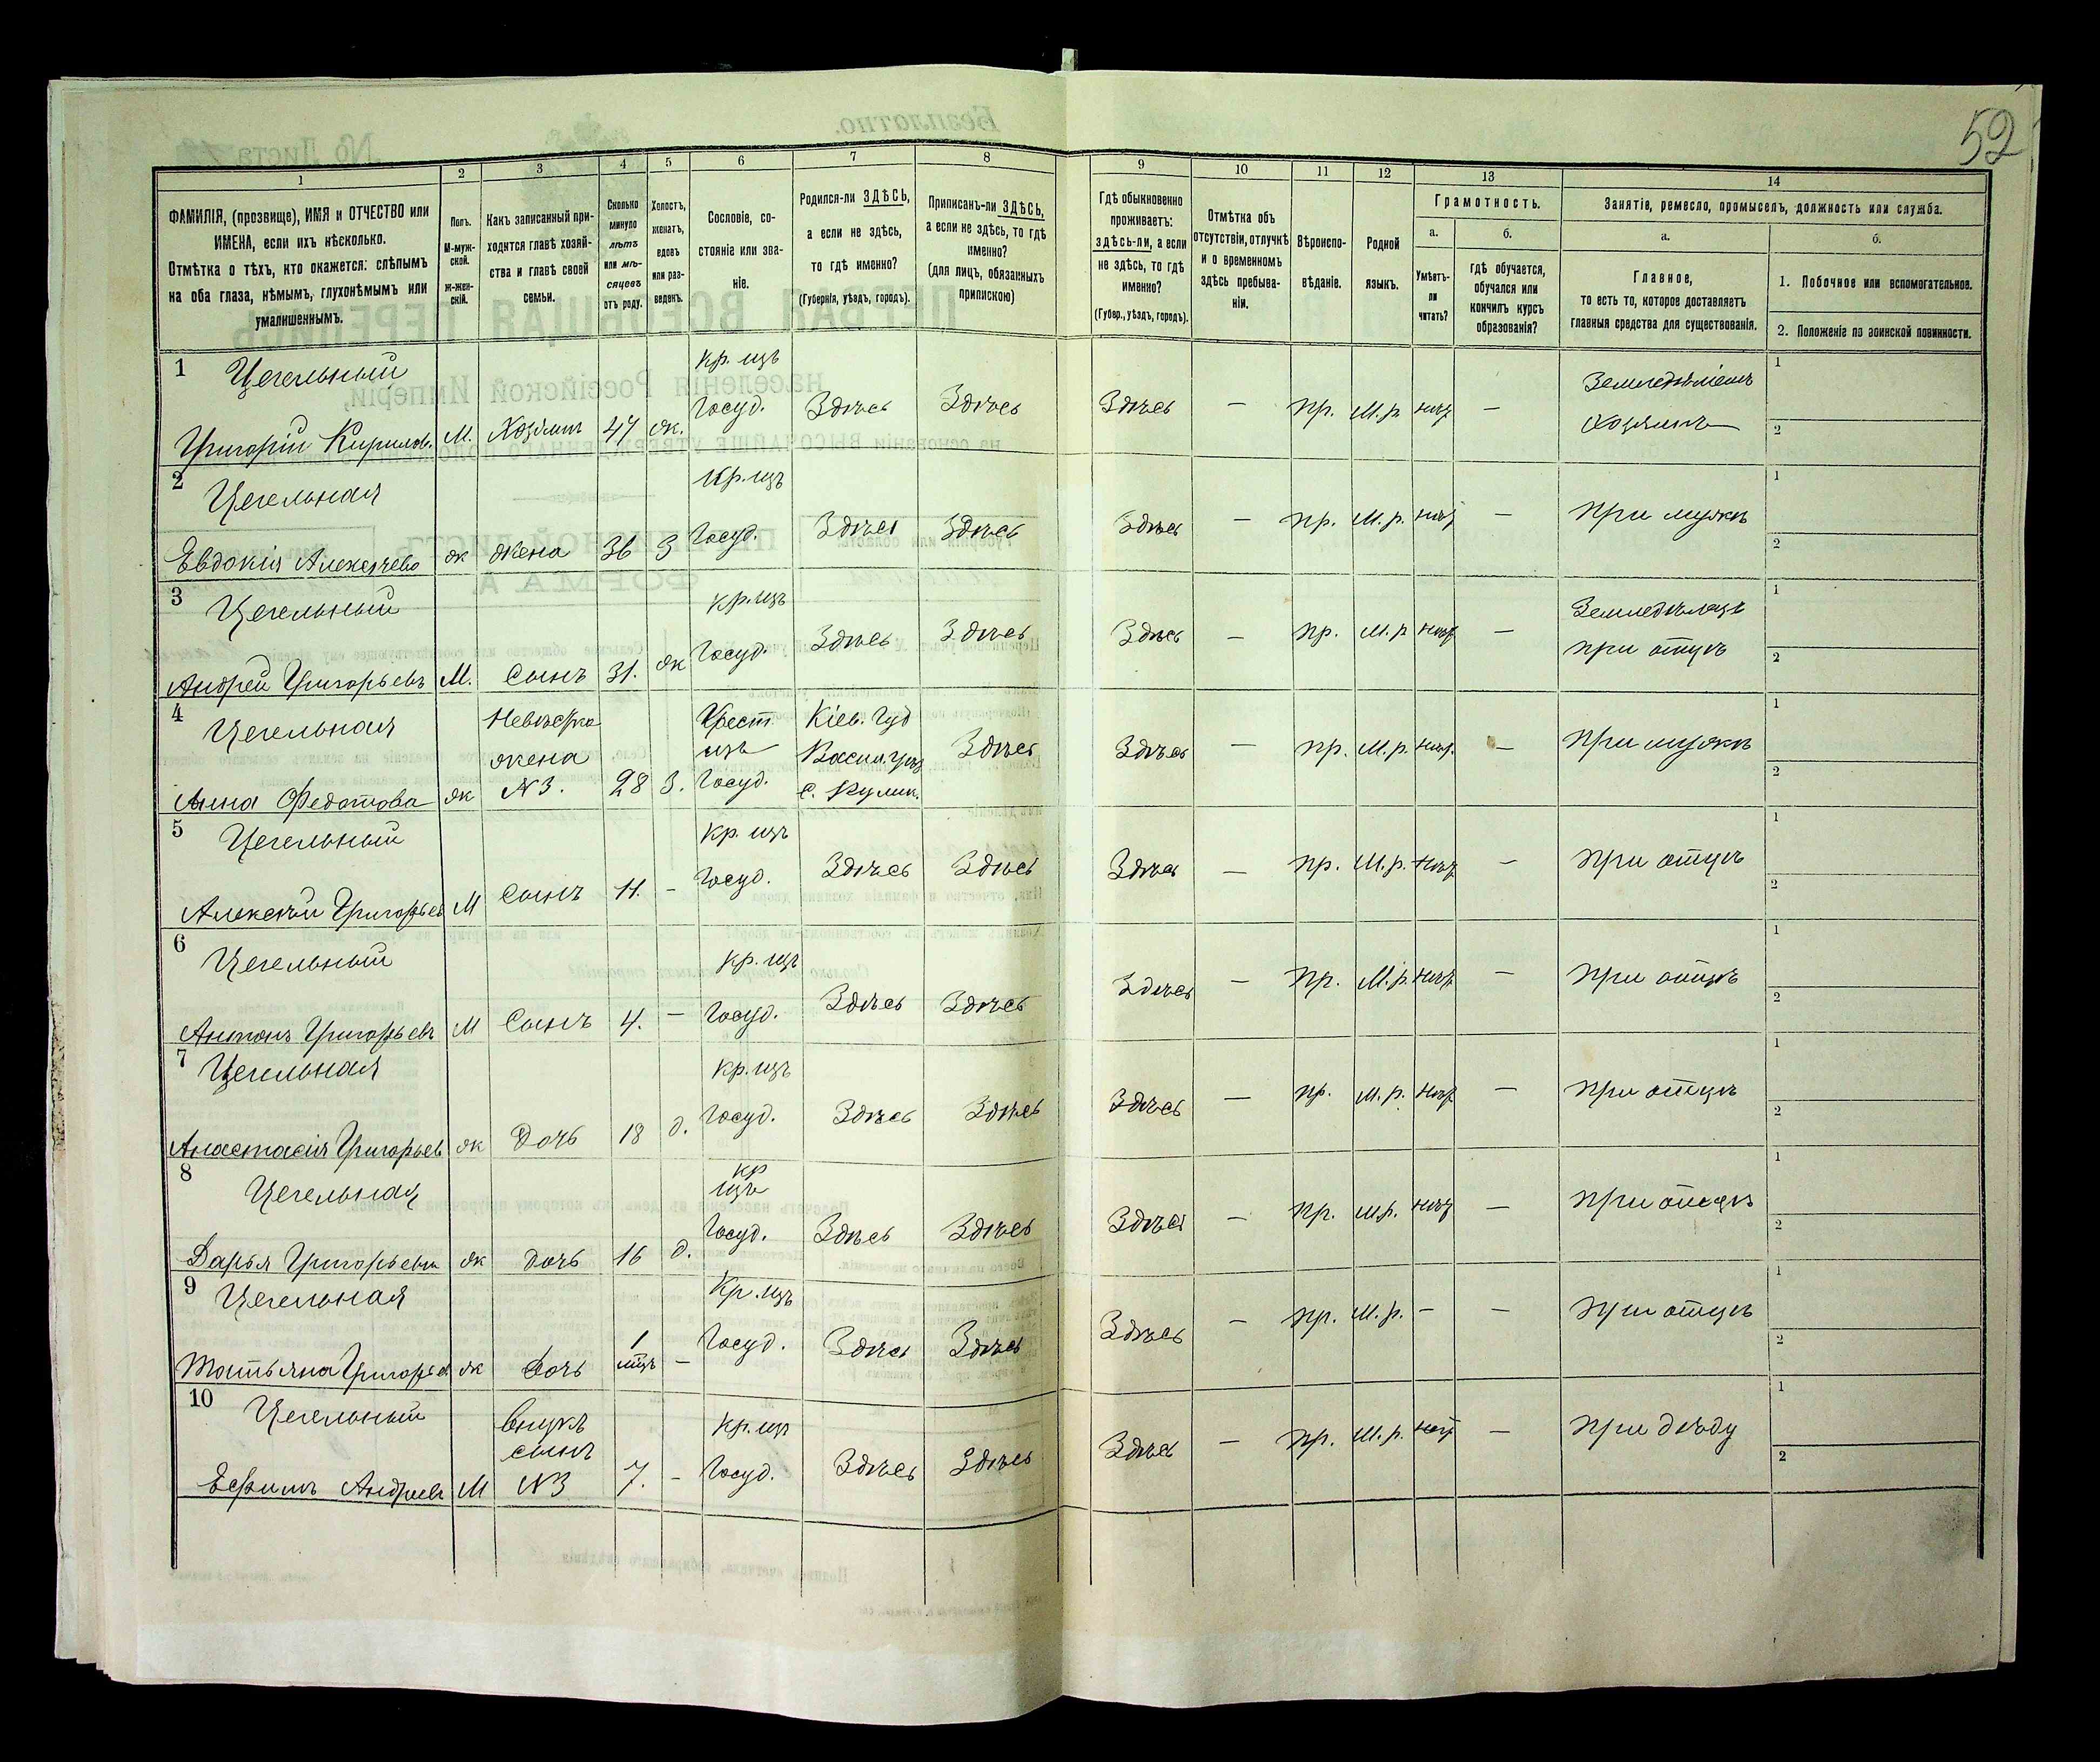 52
1 2 3 4 5 6 7 8 9 10 11 12 13 14
ФАМИЛІЯ, (прозвище), ИМЯ и ОТЧЕСТВО или
ИМЕНА, если ихъ нѣсколько.
Отмѣтка о тѣхъ, кто окажется: слѣпымъ
на оба глаза, нѣмымъ, глухонѣмымъ или
умалишеннымъ.
Полъ.
М-муж-
ской.
ж-жен-
скій.
Какъ записанный при-
ходится главѣ хозяй-
ства и главѣ своей
семьи.
Сколько
минуло
лѣтъ
или мѣ-
сяцевъ
отъ роду.
Холостъ,
женатъ,
вдовъ
или раз-
веденъ.
Сословіе, со-
стояніе или зва-
ніе.
Родился-ли ЗДѢСЬ,
а если не здѣсь,
то гдѣ именно?
(Губернія, уѣздъ, городъ).
Приписанъ-ли ЗДѢСЬ,
а если не здѣсь, то гдѣ
именно?
(для лицъ, обязанныхъ
припискою)
Гдѣ обыкновенно
проживаетъ:
здѣсь-ли, а если
не здѣсь, то гдѣ
именно?
(Губер., уѣздъ, городъ).
Отмѣтка объ
отсутствіи, отлучкѣ
и о временномъ
здѣсь пребыва-
ніи.
Вѣроиспо-
вѣданіе.
Родной
языкъ.
Грамотность.
а.
Умѣетъ-
ли
читать?
б.
гдѣ обучается,
обучался или
кончилъ курсъ
образованія?
Занятіе, ремесло, промыселъ, должность или служба.
а.
Главное,
то есть то, которое доставляетъ
главныя средства для существованія.
б.
1. Побочное или вспомогательное.
2. Положеніе по воинской повинности.
1 Цегельный кр. изъ 1
Григорій Кирилов. М. Хозяинъ 47 ж. Госуд. Здѣсь Здѣсь Здѣсь — пр. М.р. — Хозяинъ 2
2 Цегельная Кр. изъ 1
Евдокія ж жена 36 З Госуд. Здѣсь Здѣсь Здѣсь — пр. М.р. — при мужѣ 2
3 Цегельный кр. изъ 1
Андрей Григорьевъ М. Сынъ 31. ж Госуд. Здѣсь Здѣсь Здѣсь — пр. М.р — при отцѣ 2
4 Цегельная Невѣстка Крест. Кіев. Губ 1
жена изъ Васил. уѣз
Анна Федотова ж N 3. 28 З. Госуд. с. Кулик. Здѣсь Здѣсь — пр. М.р. — При мужѣ 2
5 Цегельный кр. изъ 1
Алексѣй Григорьев М Сынъ 11. — Госуд. Здѣсь Здѣсь Здѣсь — пр. М.р. — при отцѣ 2
6 Цегельный кр. изъ 1
Антонъ Григорьевъ М Сынъ 4. — Госуд. Здѣсь Здѣсь Здѣсь — пр. М.р. — при отцѣ 2
7 Цегельная кр. изъ 1
Анастасія Григорьев ж Дочь 18 д. Госуд. Здѣсь Здѣсь Здѣсь — пр. М.р. — при отцѣ 2
8 Цегельная кр 1
изъ
Дарья Григорьева ж Дочь 16 д. Госуд. Здѣсь Здѣсь Здѣсь — пр. М.р. — при отцѣ 2
9 Цегельная Кр. изъ 1
Татьяна Григорьев. ж Дочь 1 мѣц — Госуд. Здѣсь Здѣсь Здѣсь — пр. М.р. — — при отцѣ 2
10 Цегельный Внукъ кр. изъ 1
сынъ
Ефимъ Андреевъ М N3 7. — Госуд. Здѣсь Здѣсь Здѣсь — пр. М.р. — при дѣду 2